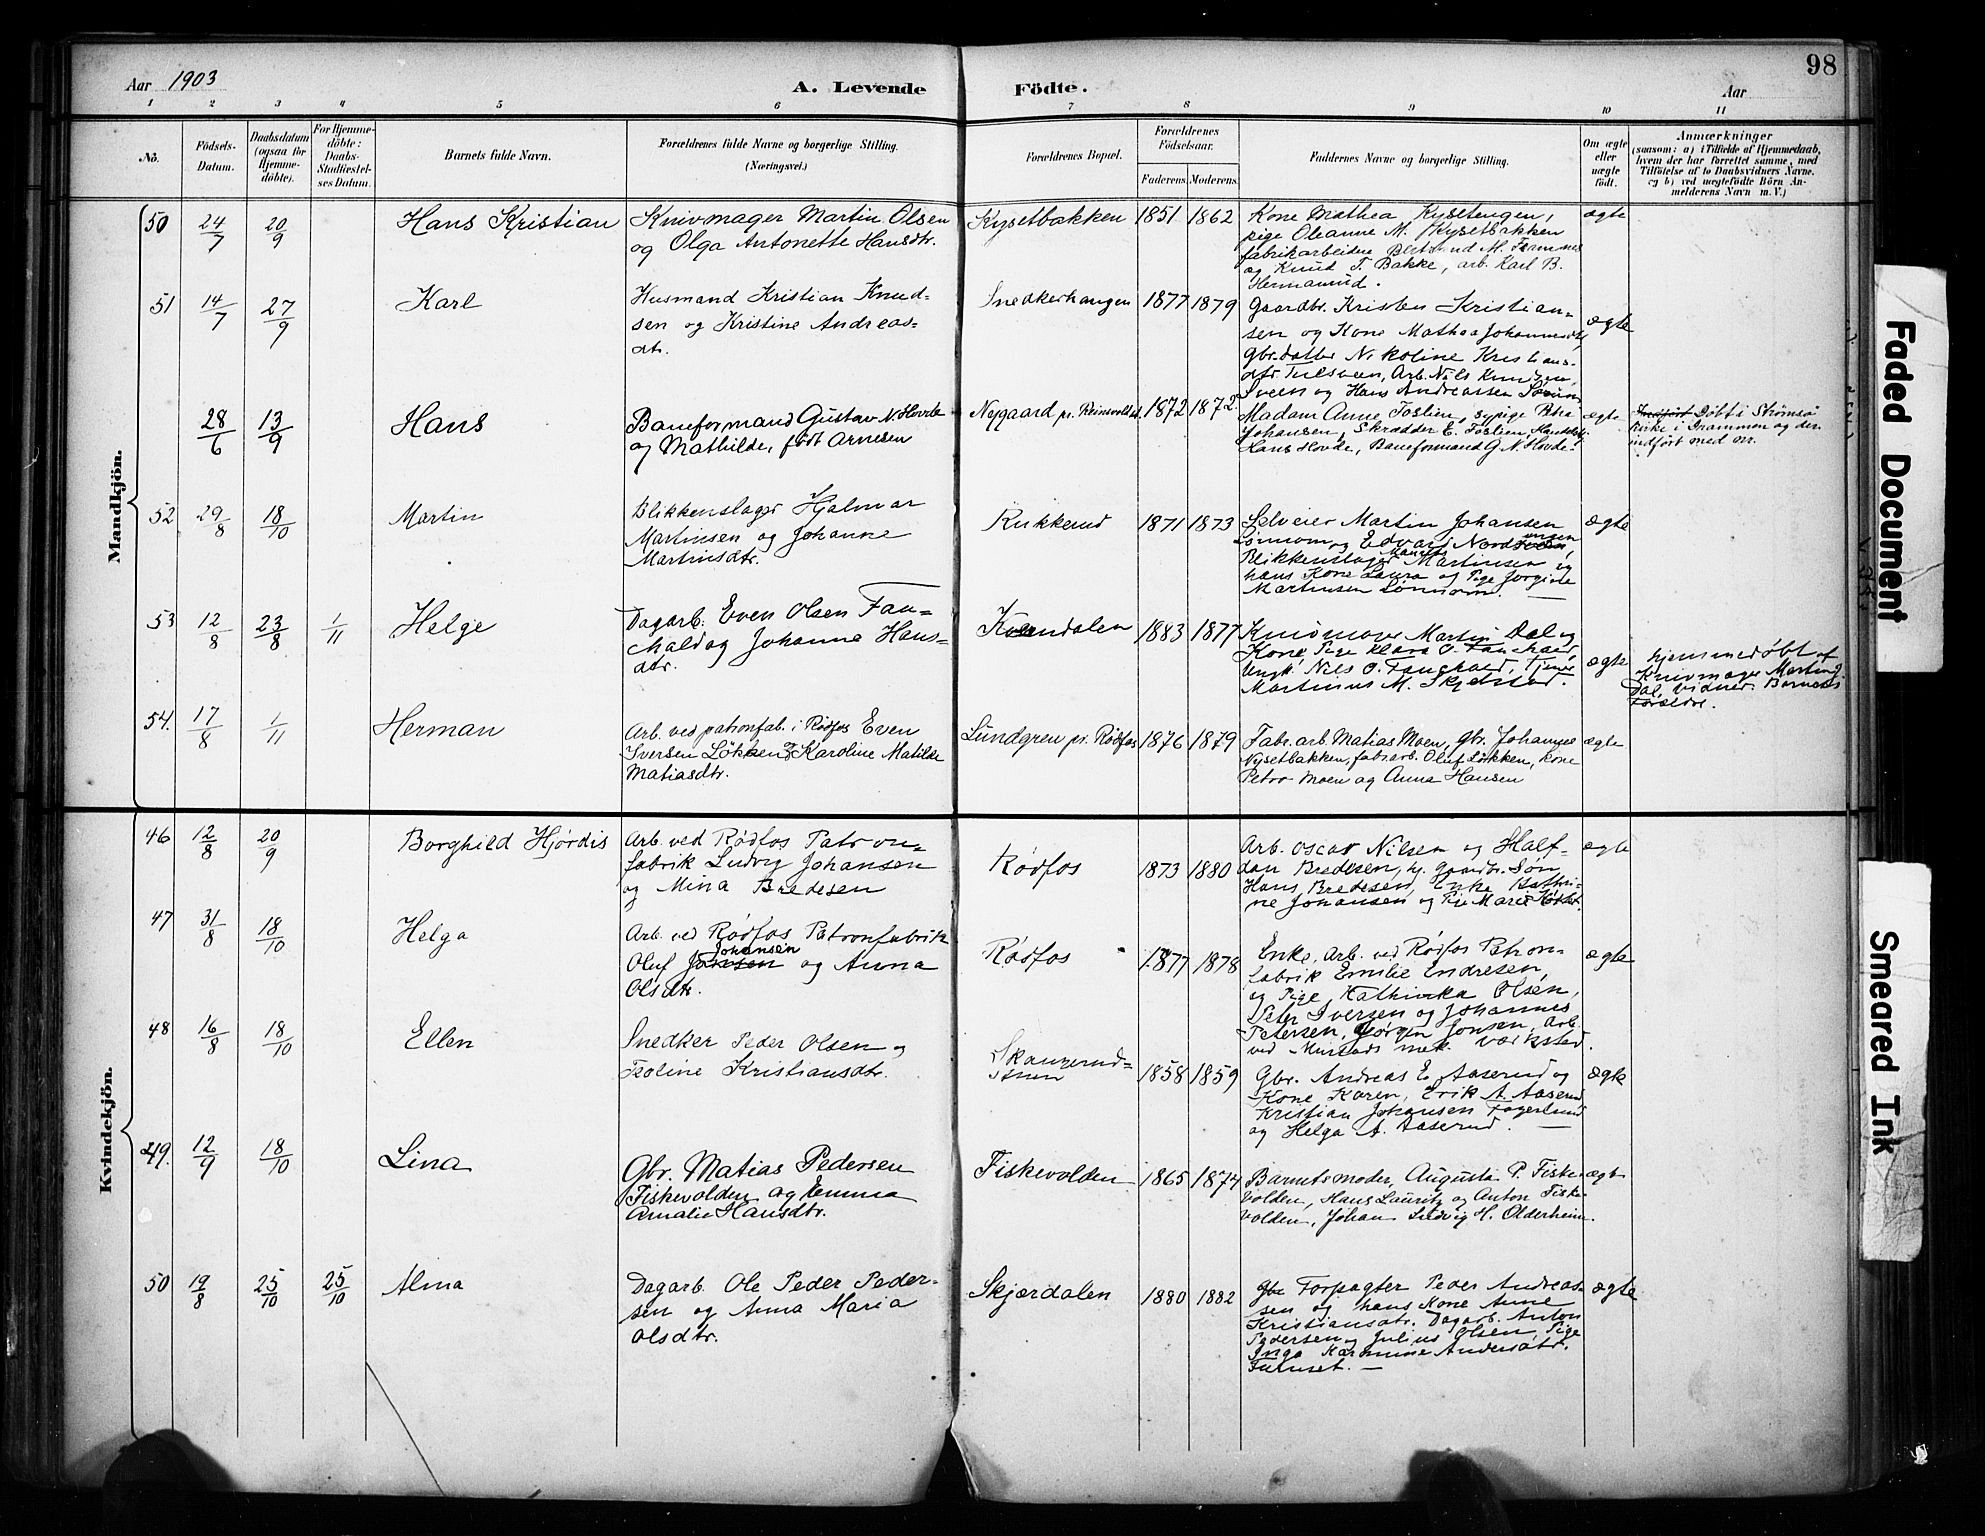 98
Aar 1903
A. Levende Födte.
Aar
1 2 3 4 5 6 7 8 9 10 11
No.
Födsels-Datum.
Daabsdatum (ogsaa for Hjemme-döbte).
For Hjemme-döbte: Daabs-Stadfæstel-ses Datum.
Barnets fulde Navn.
Forældrenes fulde Navne og borgerlige Stilling. (Næringsvei.)
Forældrenes Bopæl.
Forældrenes Födselsaar.
Faderens. Moderens.
Faddernes Navne og borgerlige Stilling.
Om ægte eller uægte födt.
Anmærkninger
(saasom: a) i Tilfælde af Hjemmedaab,
hvem der har forrettet samme, med
Tilföielse af to Daabsvidners Navne.
og b) ved uægtefödte Börn An-
melderens Navn m. V.)
Mandkjön.
50 24/7 20/9 Hans Kristian
Knivmager Martin Olsen
og Olga Antonette Hansdtr.
Kysetbakken 1851 1862
Kone Mathea Kysetengen,
pige Oleanne M. Kysetbakken
fabrikarbeidere M.
og Knud T. Bakke, arb. Karl B.
Hermanrud.
ægte
51 14/7 27/9 Karl
Husmand Kristian Knud-
sen og Kristine Andreas-
dtr.
Snedkerhaugen 1877 1879
Gaardbr. Kristen Kristian-
sen og Kone Mathea Johannesdtr,
Gbr.datter Nikoline Kristians-
dtr Arb. Nils Knudsen
Sveen og Hans Andreassen
ægte
28/6 13/9 Hans
Baneformand Gustav N. Hovde
og Mathilde, født Arnesen
Nygaard pr. Reinsvold 1872 1872
Madam Anne Foslien, sypige Petra
Johansen, Skrædder E. Foslien
Hans Hovde, Baneformand G. N. Hovde.
ægte
Indført Døbt i Strømsø
Kirke i Drammen og der
indført med nr.
52 29/8 18/10 Martin
Blikkenslager Hjalmar
Martinsen og Johanne
Martinsdtr.
Rukkerud 1871 1873
Selveier Martin Johansen
Sønnom og Edvard
Blikkenslager Martinsen og
hans Kone Laura og Pige Jørgine
Martinsen Sønnom.
ægte
53 12/8 23/8 1/11 Helge
Dagarb. Even Olsen Fau-
chald og Johanne Hans-
dtr.
1883 1877
Knivmager Martin Dal og
Kone, Pige Klara O. Fauchald,
Ungk. Nils O. Fauchald, Tjener
Martinus M. Skjelstad.
ægte
hjemmedøbt af
Knivmager Martin
Dal, vidner Barnets
Forældre.
54. 17/8 1/11 Herman
Arb. ved patronfab. i Rødfos Even
Iversen Løkken og Karoline Matilde
Matiasdtr.
Lundgren pr. Rødfos 1876 1879
Fabr.arb. Matias Moen, Gbr. Johannes
Nysetbakken, fabr.arb. Oluf Løkken, Kone
Petra Moen og Anna Hansen
ægte
Kvindekjön.
46 12/8 20/9 Borghild Hjørdis
Arb. ved Rødfos Patron-
fabrik Ludvig Johansen
og Mina Bredesen
Rødfos 1873 1880
Arb. Oscar Nilsen og Half-
dan Bredesen, Gaardbr. Søn
Hans Bredesen, Enke Kathri-
ne Johansen og Pige Marie
ægte
47 31/8 18/10 Helga
Arb. ved Rødfos Patronfabrik
Oluf Jansen Johansen og Anna
Olsdtr.
Rødfos 1877 1878
Enke, Arb. ved Rødfos Patron-
fabrik Emilie Endresen,
og Pige Kathinka Olsen,
Peter Iversen og Johannes
Petersen, Jørgen Jonsen, Arb.
ved Mustads mek. Værksted.
ægte
48 16/8 18/10 Ellen
Snedker Peder Olsen og
Teoline Kristiansdtr.
1858 1859
Gbr. Andreas E. Aaserud og
Kone Karen, Erik A. Aaserud
Kristian Johansen Fagerlund
og Helga A. Aaserud.
ægte
49. 12/9 18/10 Lina
Gbr. Matias Pedersen
Fiskevolden og Emma
Amalie Hansdtr.
Fiskevolden 1865 1874
Barnets moder, Augusta P. Fiske-
volden, Hans Lauritz og Anton Fiske-
volden, Johan Ludvig H. Olderheim.
ægte
50 19/8 25/10 25/10 Alma
Dagarb. Ole Peder Peder-
sen og Anna Maria
Olsdtr.
Skjærdalen 1880 1882
Gbr Forpagter Peder Andreas-
sen og hans Kone Anne
Kristiansdtr. Dagarb. Anton
Pedersen og Julius Olsen, Pige
Inga Karoline Andersdtr.
Furuset.
ægte
Faded Document
Smeared Ink